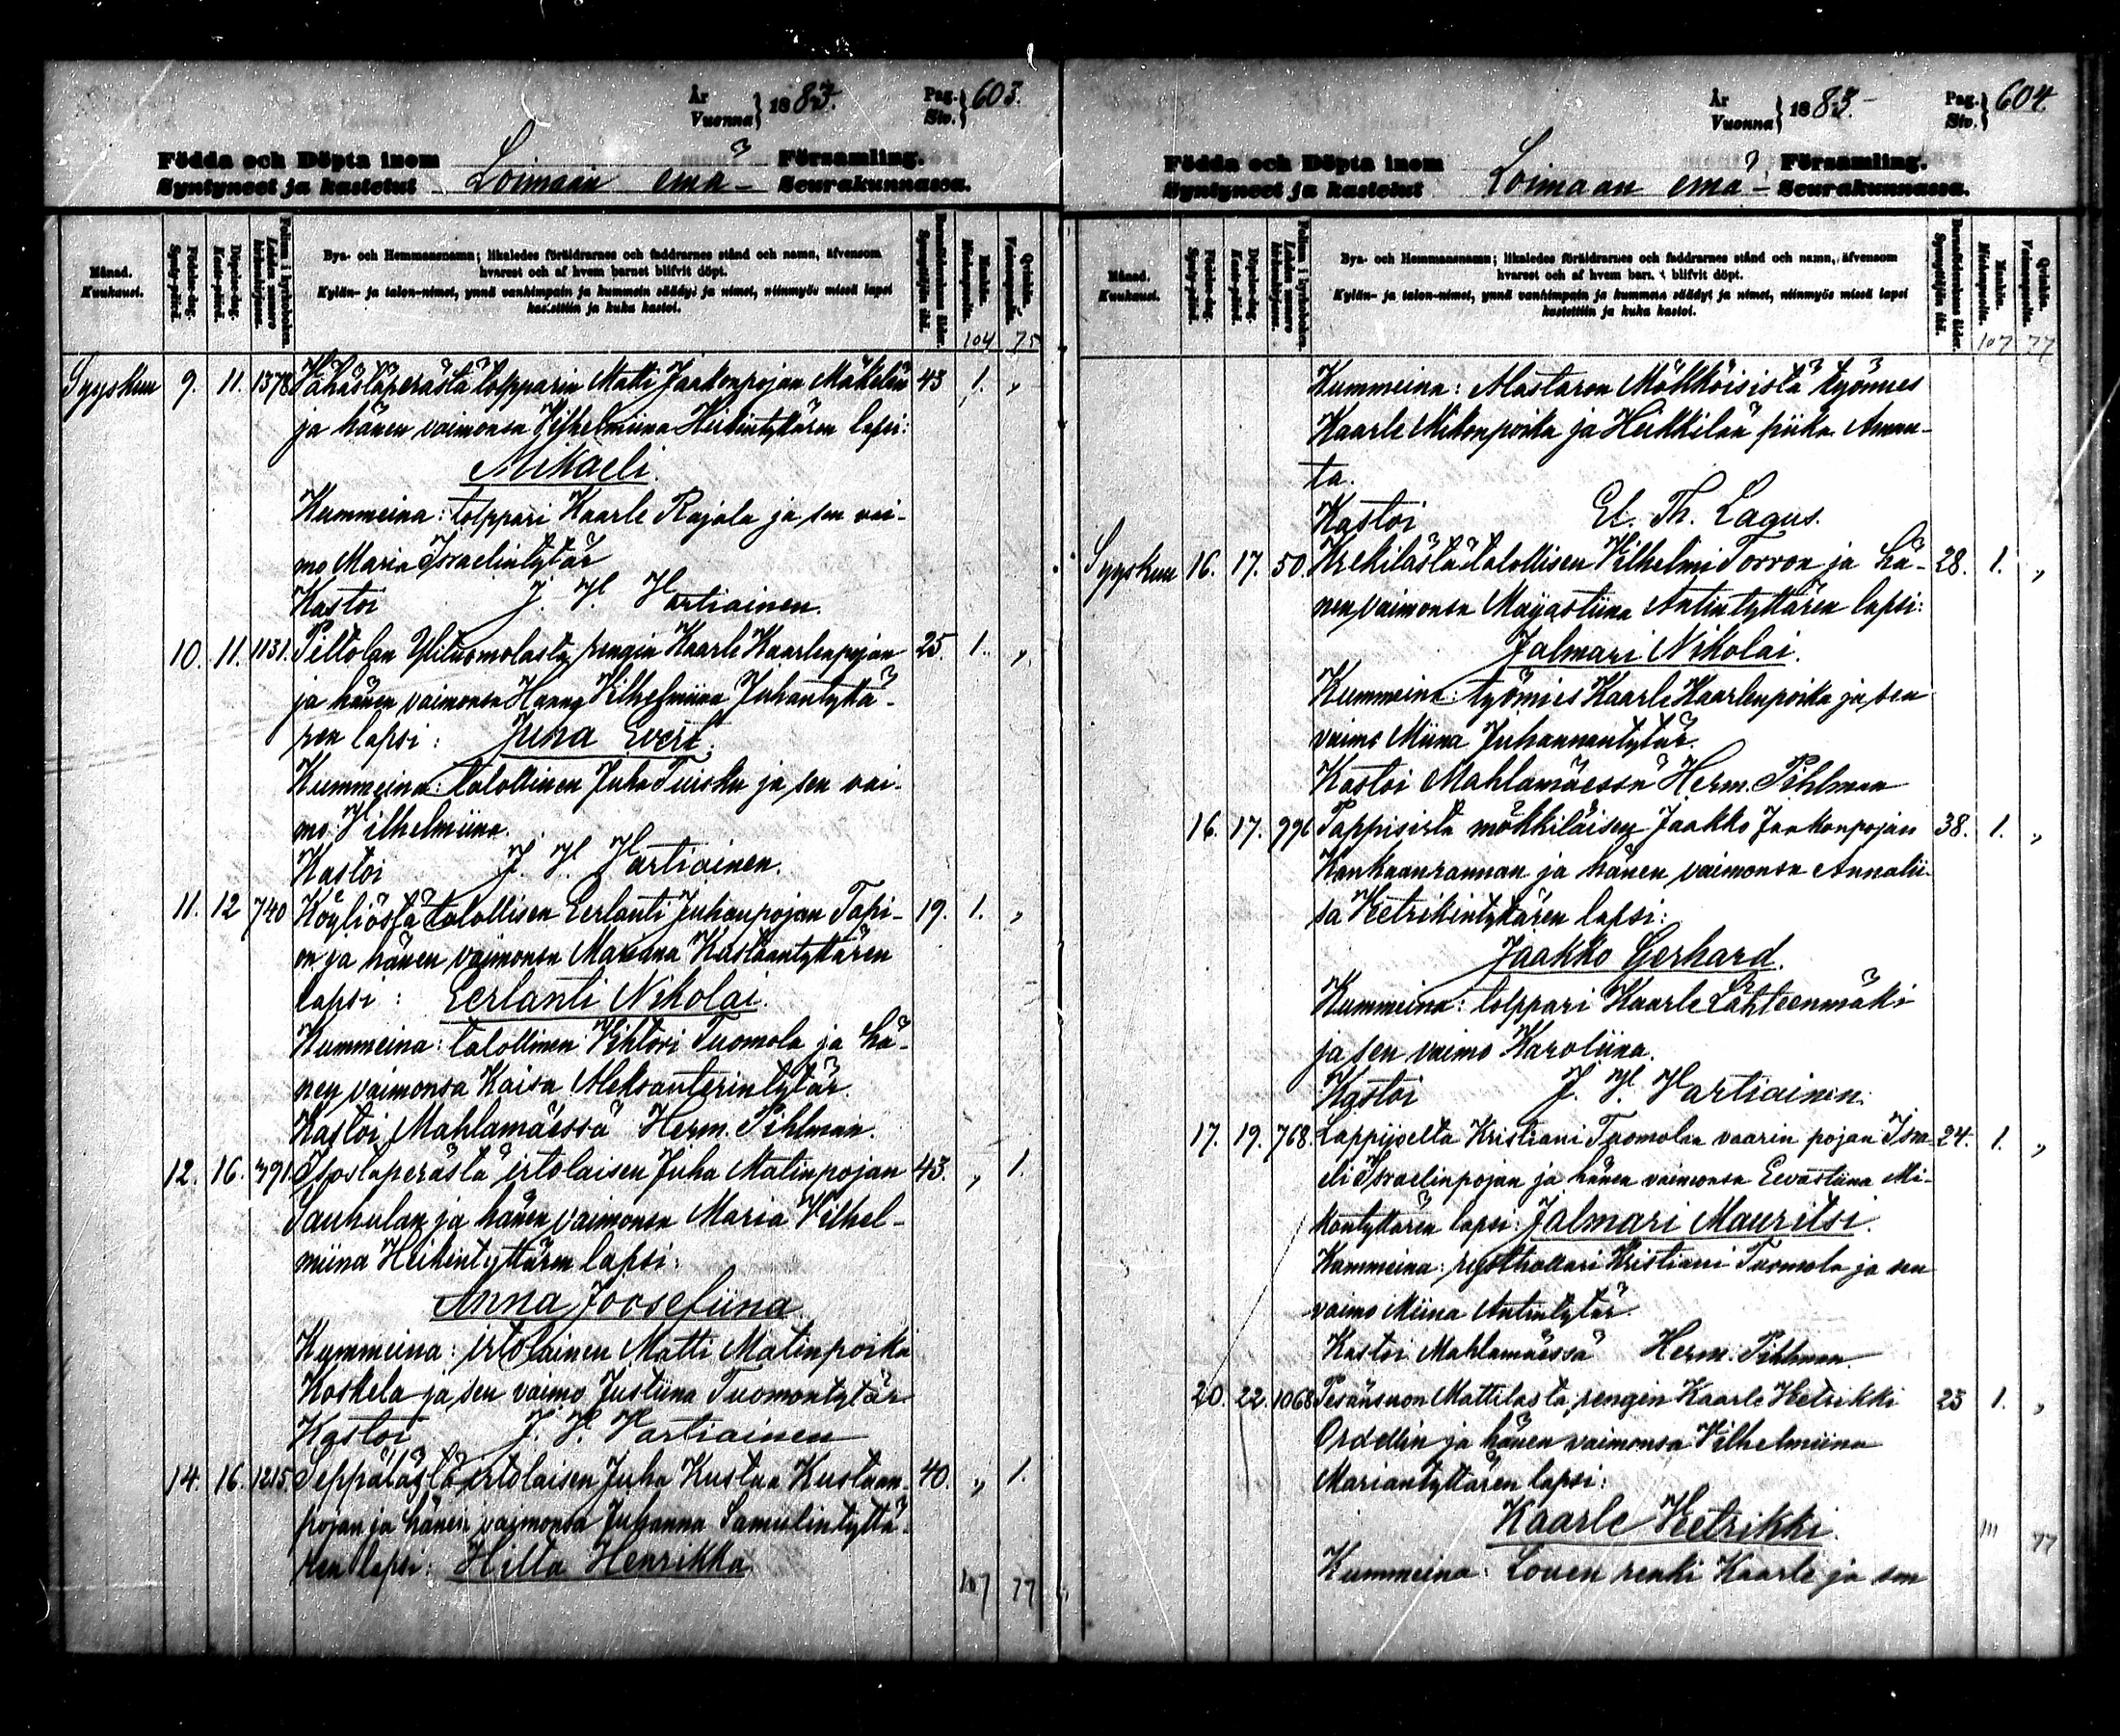 År
Vuonna } 1883.
Pag.
Siv. } 603.
Födda och Döpta inom Församling.
Syntyneet ja kastetut Loimaan emä- Seurakunnassa.
Månad.
Kuukausi.
Födelse-dag.
Synty-päivä.
Döpelse-dag.
Kaste-päivä.
Folium i kyrkoboken.
Lehden numero kirkonkirjassa.
Bya- och Hemmansnamn; likaledes föräldrarnes och faddrarnes stånd och namn, äfvensom
hvarest och af hvem barnet blifvit döpt.
Kylän- ja talon-nimet, ynnä vanhimpain ja kummein säädyt ja nimet, niinmyös missä lapsi
kastettiin ja kuka kastoi.
Barnaföderskans ålder.
Synnyttäjän ikä.
Mankön.
Miehenpuolia.
Qvinkön.
Vaimonpuolia.
104 75
Syyskuu 9. 11. 1378 Vähästäperästä torpparin Matti Jaakonpojan Mäkelän 43 1. „
ja hänen vaimonsa Vilhelmiina Heikintyttären lapsi:
Mikaeli.
Kummeina: torppari Kaarle Rajala ja sen vai-
mo Maria Israelintytär
Kastoi J. H. Hartiainen.
10. 11. 1131. Peltolan Ylituomolasta rengin Kaarle Kaarlenpojan 25. 1. „
ja hänen vaimonsa Hanna Vilhelmiina Juhantyttä-
ren lapsi: Juha Evert.
Kummeina: talollinen Juha Tuisku ja sen vai-
mo Vilhelmiina.
Kastoi J. H. Hartiainen.
11. 12 740 Köyliöstä talollisen Eerlanti Juhanpojan Tapi- 19. 1. „
on ja hänen vaimonsa Maxana Kustaantyttären
lapsi: Eerlanti Nikolai.
Kummeina: talollinen Vihtori Tuomola ja hä-
nen vaimonsa Kaisa Aleksanterintytär.
Kastoi Mahlamäessä Herm. Pihlman.
12. 16. 391. Isostaperästä irtolaisen Juha Matinpojan 43. „ 1.
Sauhulan ja hänen vaimonsa Maria Vilhel-
miina Heikintyttären lapsi:
Anna Joosefiina
Kummeina: irtolainen Matti Matinpoika
Koskela ja sen vaimo Justiina Tuomontytär
Kastoi J. H. Hartiainen
14. 16. 1215. Seppälästä irtolaisen Juha Kustaa Kustaan- 40. „ 1.
pojan ja hänen vaimonsa Juhanna Samulintyttä-
ren lapsi: Hilta Henrikka
107 77
År
Vuonna } 1883.
Pag.
Siv. } 604.
Födda och Döpta inom Församling.
Syntyneet ja kastetut Loimaan emä- Seurakunnassa.
Månad.
Kuukausi.
Födelse-dag.
Synty-päivä.
Döpelse-dag.
Kaste-päivä.
Folium i kyrkoboken.
Lehden numero kirkonkirjassa.
Bya- och Hemmansnamn; likaledes föräldrarnes och faddrarnes stånd och namn, äfvensom
hvarest och af hvem barnet blifvit döpt.
Kylän- ja talon-nimet, ynnä vanhimpain ja kummein säädyt ja nimet, niinmyös missä lapsi
kastettiin ja kuka kastoi.
Barnaföderskans ålder.
Synnyttäjän ikä.
Mankön.
Miehenpuolia.
Qvinkön.
Vaimonpuolia.
107 77
Kummeina: Alastaron Mälkköisistä työmies
Kaarle Mikonpoika ja Heikkilän piika Aman-
ta.
Kastoi El. Th. Lagus.
Syyskuu 16. 17. 50. Krekilästä talollisen Vilhelmi Torron ja hä- 28. 1. „
nen vaimonsa Majastiina Antintyttären lapsi:
Jalmari Nikolai.
Kummeina: työmies Kaarle Kaarlenpoika ja sen
vaimo Miina Juhannantytär.
Kastoi Mahlamäessä Herm. Pihlman
16. 17. 996 Pappisista mökkiläisen Jaakko Jaakonpojan 38. 1. „
Kankaanrannan ja hänen vaimonsa Annalii-
sa Veetrikintyttären lapsi:
Jaakko Gerhard.
Kummeina: torppari Kaarle Lähteenmäki
ja sen vaimo Karoliina.
Kastoi J. H. Hartiainen.
17. 19. 768. Lappijoelta Kristiani Tuomolan vaarin pojan Isra- 24. 1. „
eli Israelinpojan ja hänen vaimonsa Eevastiina Mi-
kontyttären lapsi: Jalmari Mauritsi.
Kummeina: rusthollari Kristiani Tuomola ja sen
vaimo Miina Antintytär.
Kastoi Mahlamäessä Herm. Pihlman.
20. 22. 1068 Pesänsuon Mattilasta rengin Kaarle Veetrikki 23 1. „
Ordellin ja hänen vaimonsa Vilhelmiina
Mariantyttären lapsi:
Kaarle Veetrikki.
111 77
Kummeina: Louen renki Kaarle ja sen